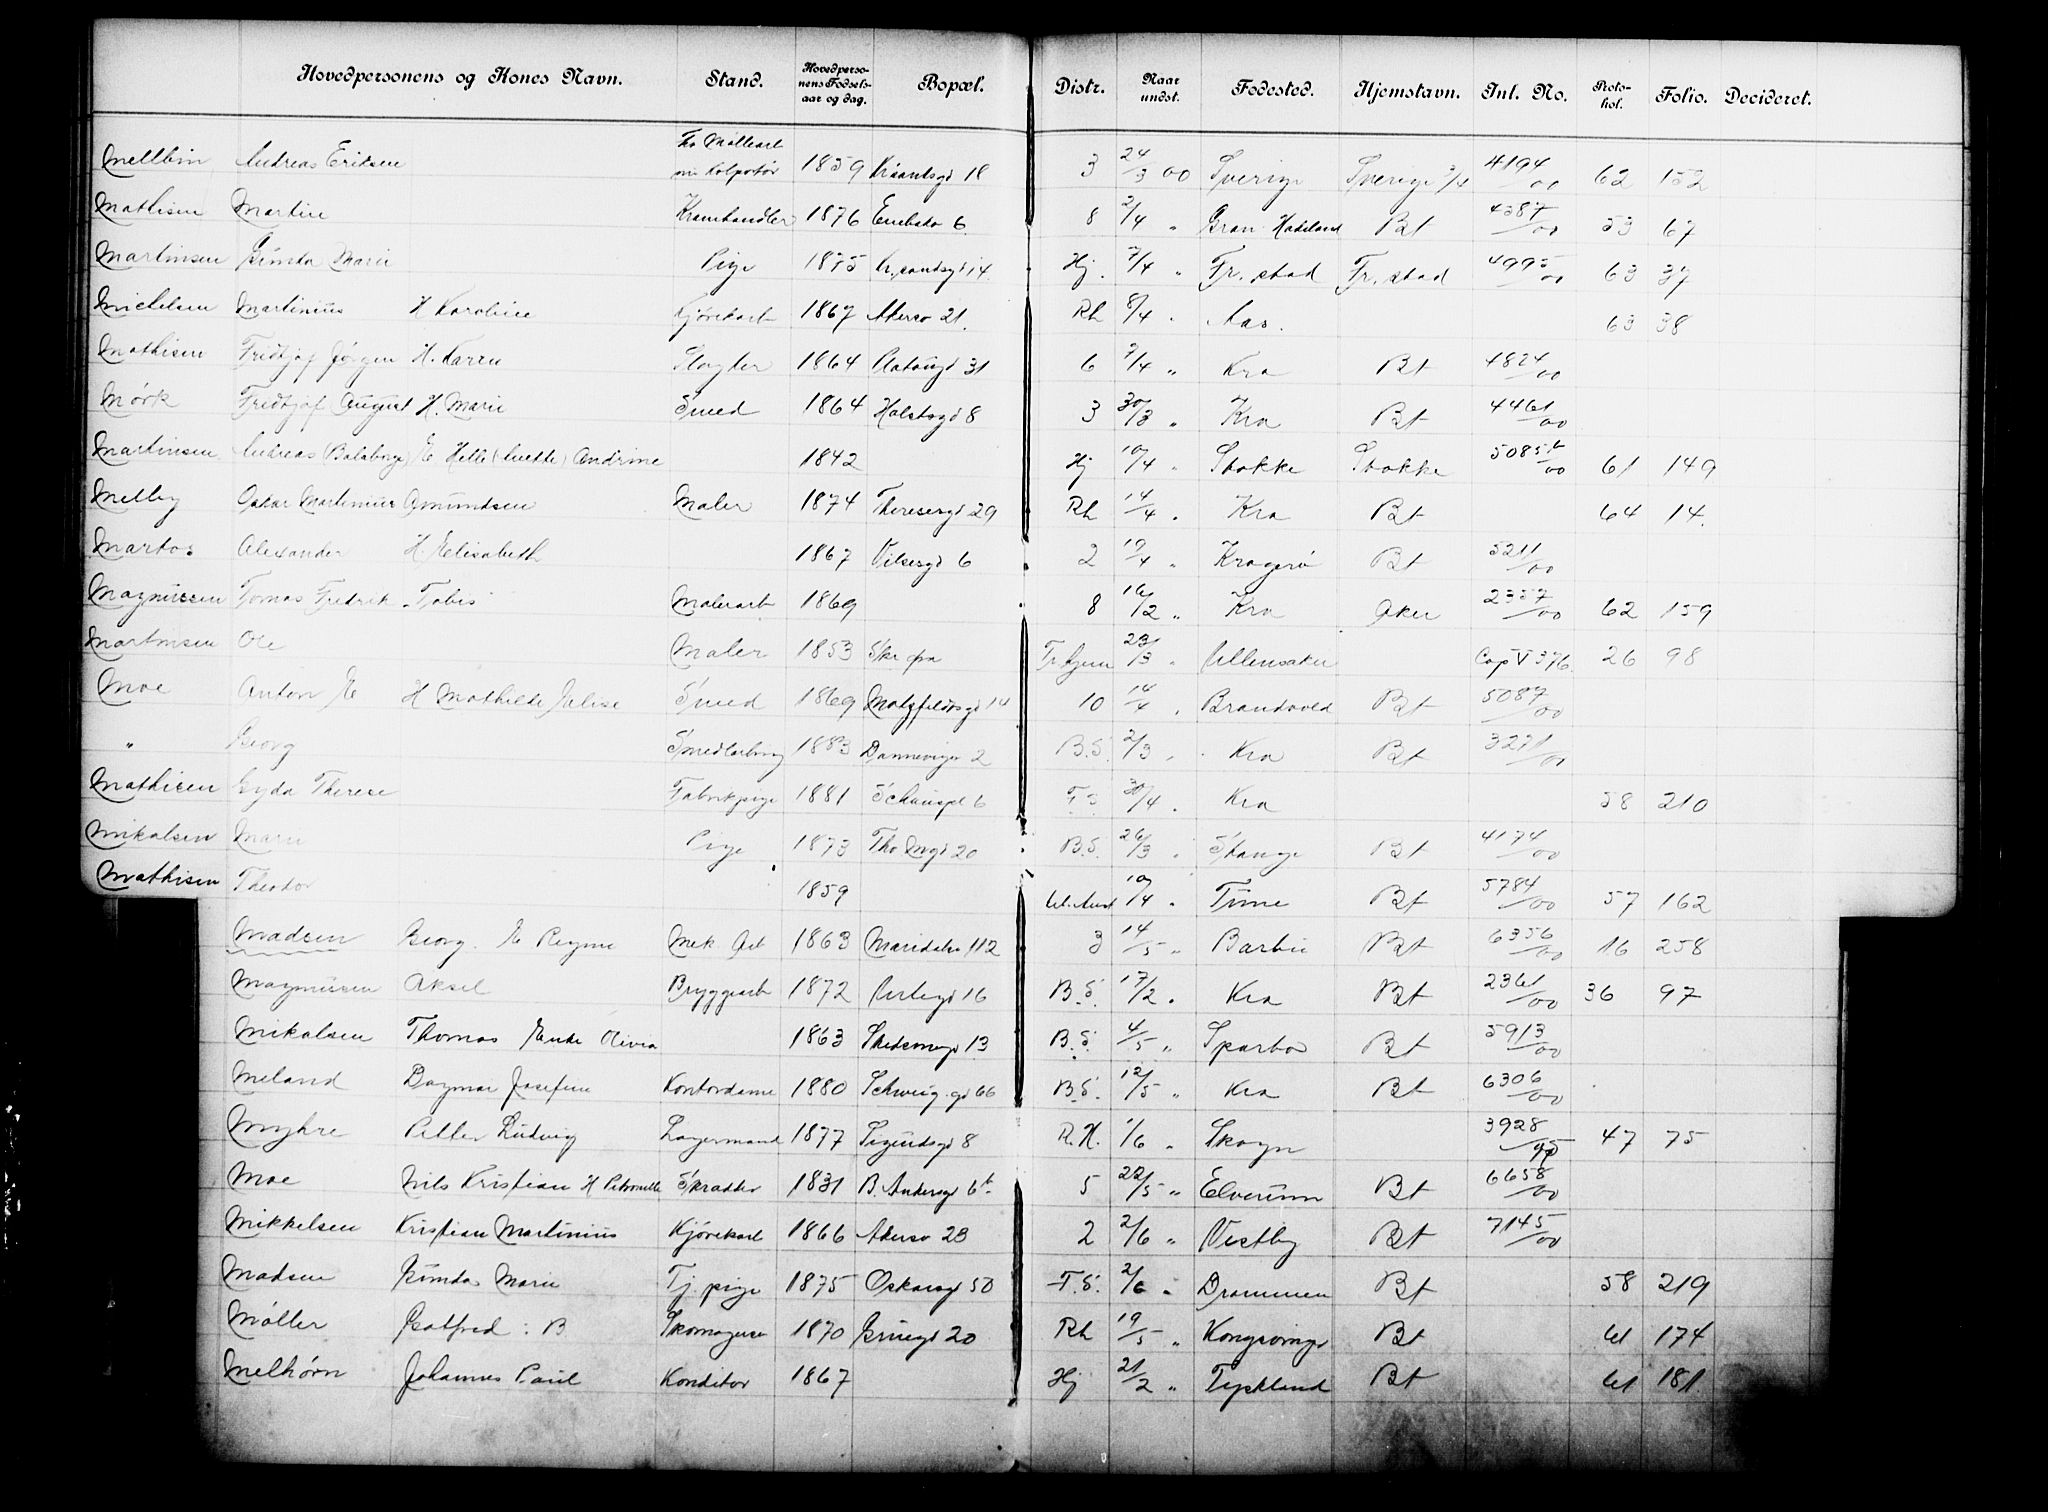 Hovedpersonens og Kones Navn. Stand. Hovedpersonens Fødselsaar og dag. Bopæl. Distr. Naar undst. Fødested. Hjemstavn. Int. No. Protokol. Folio. Decideret.
Mellbin Andreas Eriksen 1859 Krsandsgd 18 3 24/3 00 Sverige Sverige 3/4 4194/00 62 152
Mathisen Martin Kramhandler 1876 8 2/4 " Gran Hadeland Bt 4387/00 53 67
Martinsen Gunda Marie Pige 1875 Kr.sandsgd 14. Hj. 7/4 " Fr.stad Fr.stad 4995/00 63 37
Michelsen Martinius H Karoline Kjørekarl 1867 Akersv 21. Rh 8/4 " Aas. 63 38
Mathisen Fridtjof Jørgen H. Karen Slagter 1864 31 6 7/4 " Kra Bt 4824/00
Mørk Fridtjof August H. Marie Smed 1864 Holstsgd 8 3 30/3 " Kra Bt 4461/00
Martinsen Andreas E Helle Andrine 1842 Hj 10/4 " Stokke Stokke 5085b/00 61 149
Melby Oskar Martinius Amundsen Maler 1874 Theresesgd 29 Rh 14/4 " Kra Bt 64 14.
Martos Alexander H. Elisabeth 1867 Vilsesgd 6 2 19/4 " Kragerø Bt 5211/00
Magnussen Tomas Fredrik Tobis Malerarb 1869 8 16/2 " Kra Aker 2357/00 62 159
Martinsen Ole Maler 1853 Tr.hjem 23/3 " Ullensaker Cop V 376. 26 98
Moe Anton E H Mathilde Elise Smed 1869 Motzfeldsgd 14 10 14/4 " Brandvold Bt 5087/00
" Georg 1883 Dannevigsv 2 B.S. 2/3 " Kra Bt 3271/00
Mathisen Gyda Therese Fabrikpige 1881 Schouspl 6 30/4 " Kra 58 210
Mikalsen Marie Pige 1873 Th. Mgd 20 B.S. 26/3 " Stange Bt 4174/00
Mathisen Theodor 1859 10/4 " Time Bt 5784/00 57 162
Madsen Georg. E Regine Mek Arb 1863 Maridalsv 112 3 14/5 " Barbu Bt 6356/00 16 258
Magnussen Aksel Bryggearb 1872 Urtegd 16 B.S. 17/2 " Kra Bt 2361/00 36 97
Mikalsen Thomas Enke Olivia 1863 Skedsmogd 13 B.S. 4/5 " Sparbo Bt 5913/00
Meland Dagmar Josefine Kontordame 1880 Schweig.gd 66 B.S. 12/5 " Kra Bt 6306/00
Myhre Petter Ludvig Lagermand 1877 Sigurdsgd 8 R.H. 1/6 " Skogn 3928/95 47 75
Moe Nils Kristian H Petronelle Skrædder 1831 B. Ankersgd 6b. 5 22/5 " Elverum Bt 6658/00
Mikkelsen Kristian Martinius Kjørekarl 1866 Akersv 23 2 2/6 " Vestby Bt 7145/00
Madsen Gunda Marie Tj. pige 1875 Oskarsgd 50 F.S. 2/6 " Drammen Bt 58 219
Møller Gotfred : B Skomagersv 1870 Grünegd 20 Rh 19/5 " Kongsvinger Bt 61 174
Melhørn Johannes Paul Konditor 1867 Hj 21/2 " Tyskland Bt 61 181